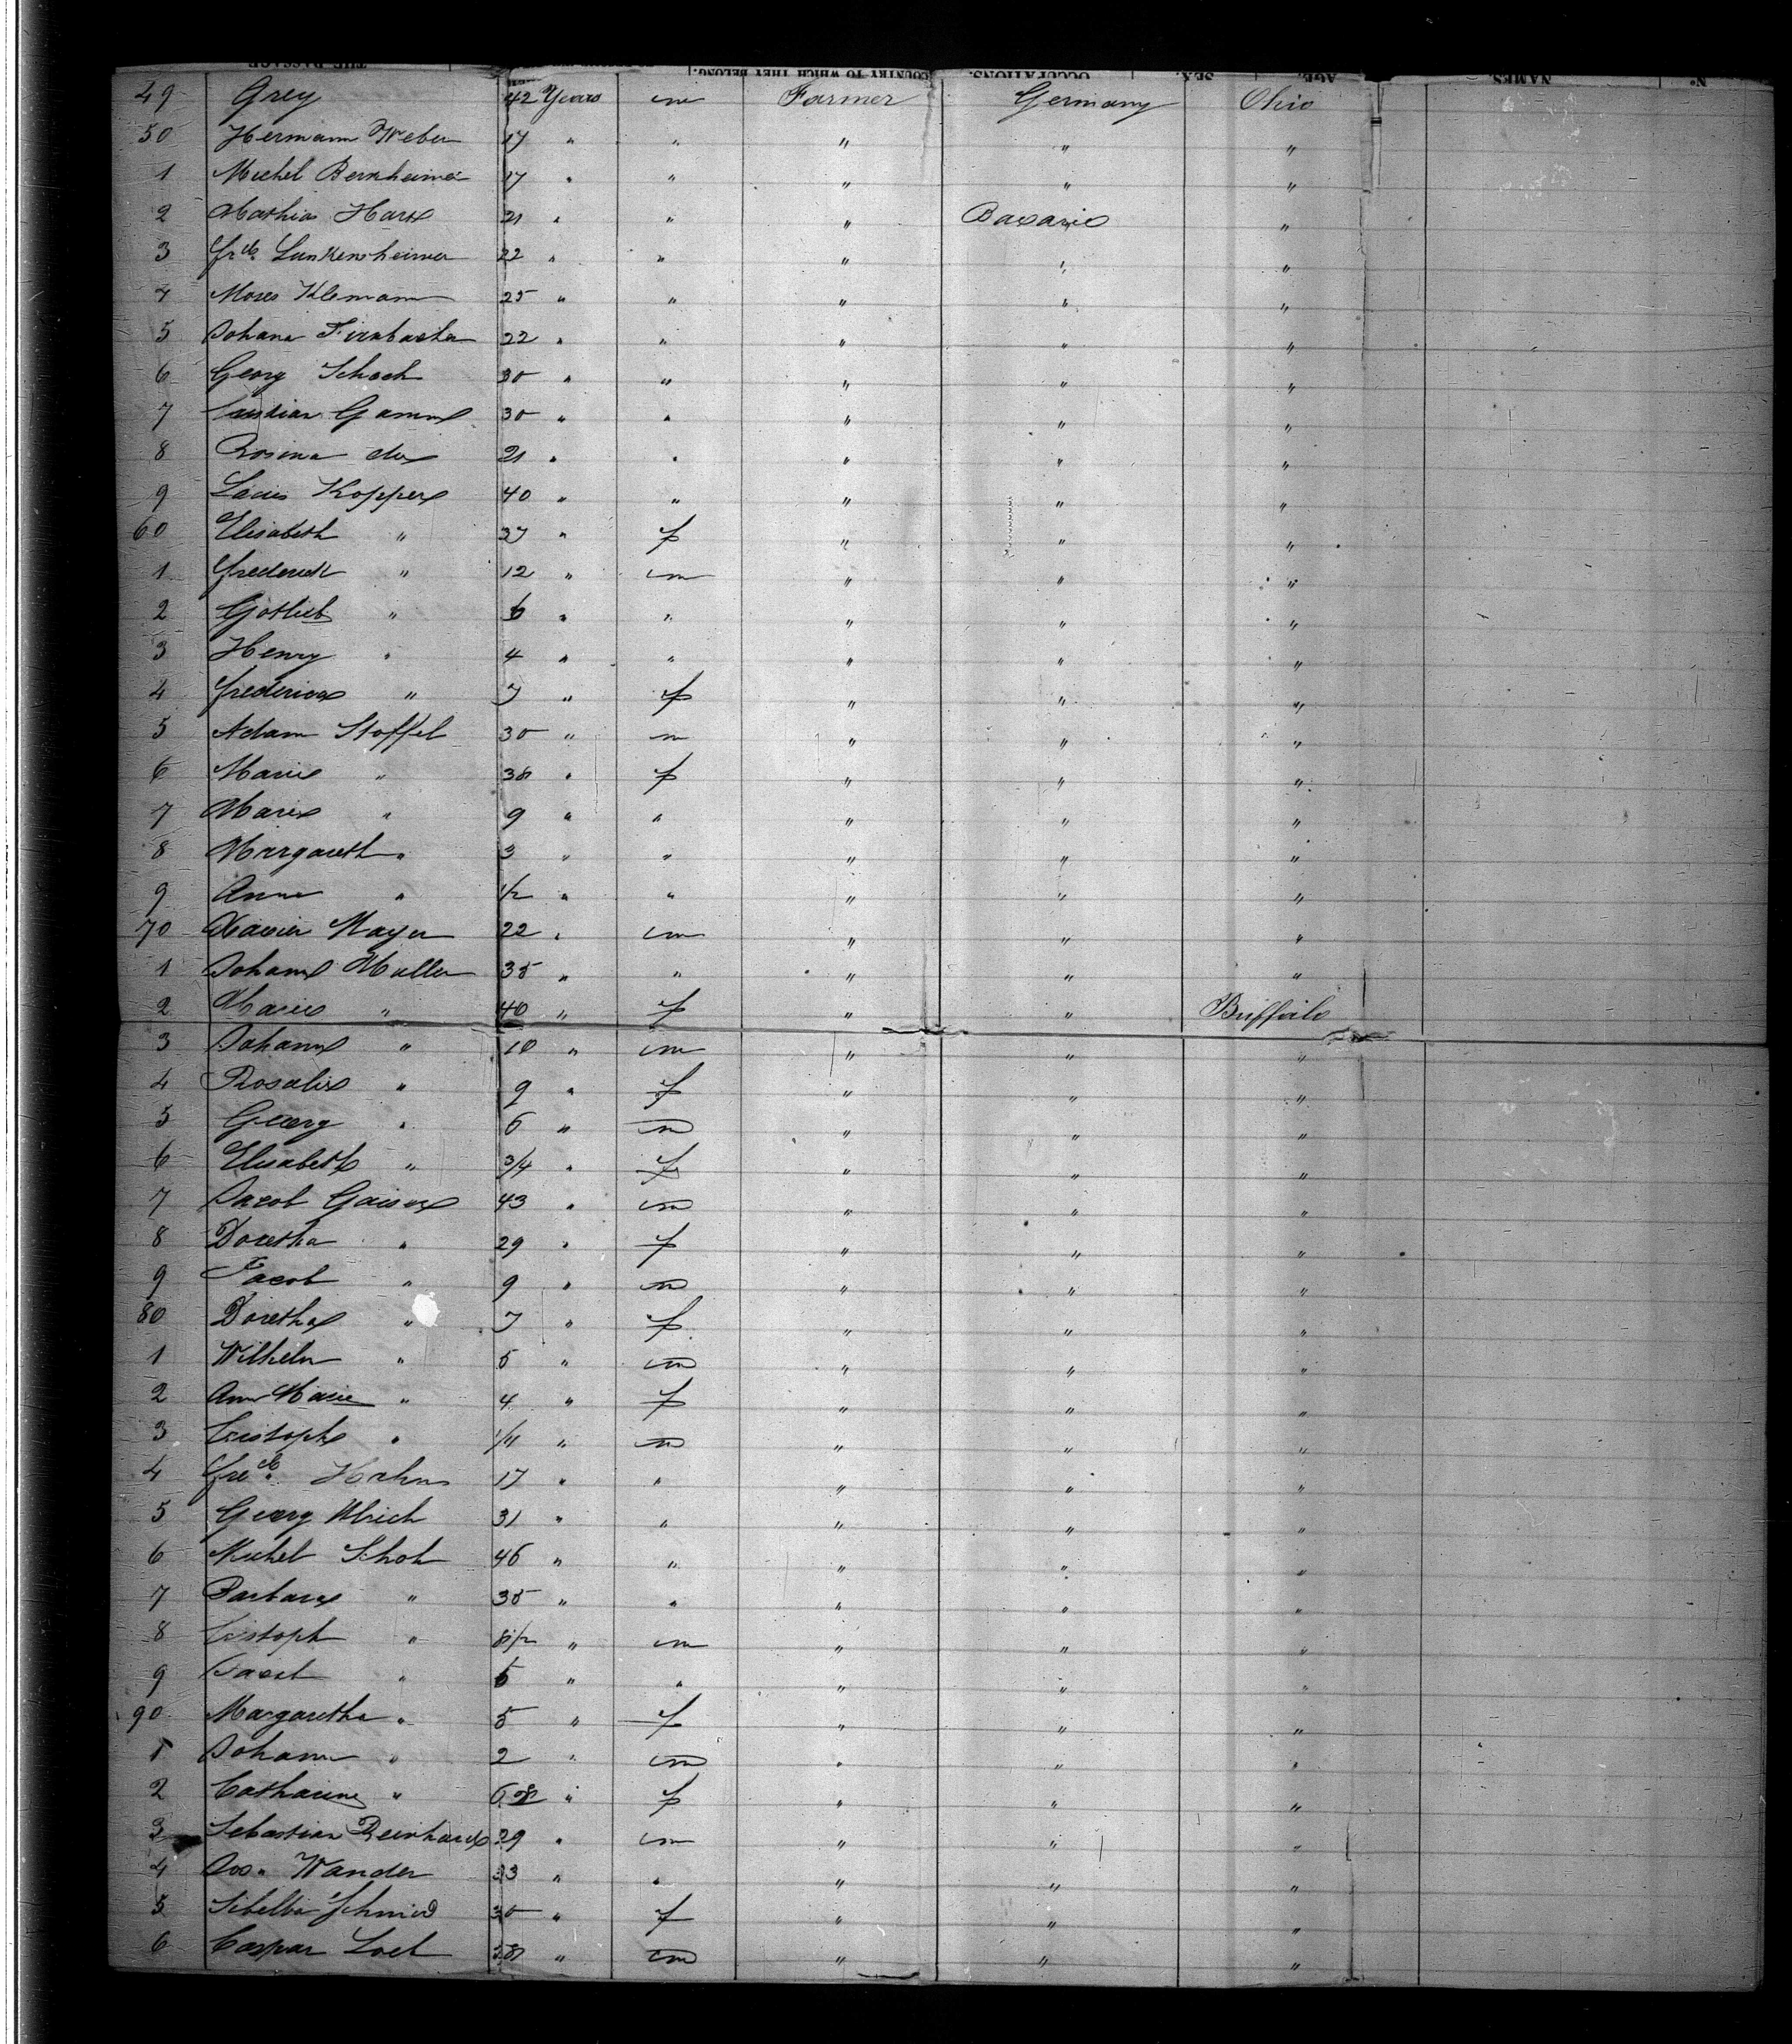 49 Grey 42 Years m Farmer Germany Ohio
50 Hermann Weber 17 " " " " "
1 Michel Bernheimer 17 " " " " "
2 Mathias 21 " " " Bavaria "
3 Frdk. Lunkenheimer 22 " " " " "
4 Moses Klemann 25 " " " " "
5 Johann 22 " " " " "
6 Georg Schoch 30 " " " " "
7 30 " " " " "
8 Rosina do 21 " " " " "
9 Louis Kopper 40 " " " " "
60 Elisabeth " 37 " f " " "
1 Frederick " 12 " m " " "
2 Gotlieb " 6 " " " " "
3 Henry " 4 " " " " "
4 Frederica " 7 " f " " "
5 Adam Stoffel 30 " m " " "
6 Marie " 38 " f " " "
7 Marie " 9 " " " " "
8 Margareth " 3 " " " " "
9 Anna " 1/2 " " " " "
70 Xavier Mayer 22 " m " " "
1 Johann Muller 35 " " " " "
2 Marie " 40 " f " " Buffalo
3 Johann " 10 " m " " "
4 Rosalie " 9 " f " " "
5 Georg " 6 " m " " "
6 Elisabeth " 3/4 " f " " "
7 Jacob Gaiser 43 " m " " "
8 Doretha " 29 " f " " "
9 Jacob " 9 " m " " "
80 Doretha " 7 " f " " "
1 Wilhelm " 5 " m " " "
2 Ann Marie " 4 " f " " "
3 Cristoph " 1/11 " m " " "
4 Fredk. Hahn 17 " " " " "
5 Georg Ulrich 31 " " " " "
6 Michel Schoh 46 " " " " "
7 Barbara " 35 " " " " "
8 Cristoph " 8 1/2 " m " " "
9 Jacob " 6 " " " " "
90 Margaretha " 5 " f " " "
1 Johann " 2 " m " " "
2 Catharine " " f " " "
3 Sebastian 29 " m " " "
4 Jos. Wander 33 " " " " "
5 Schmid 30 " f " " "
6 Caspar 38 " m " " "